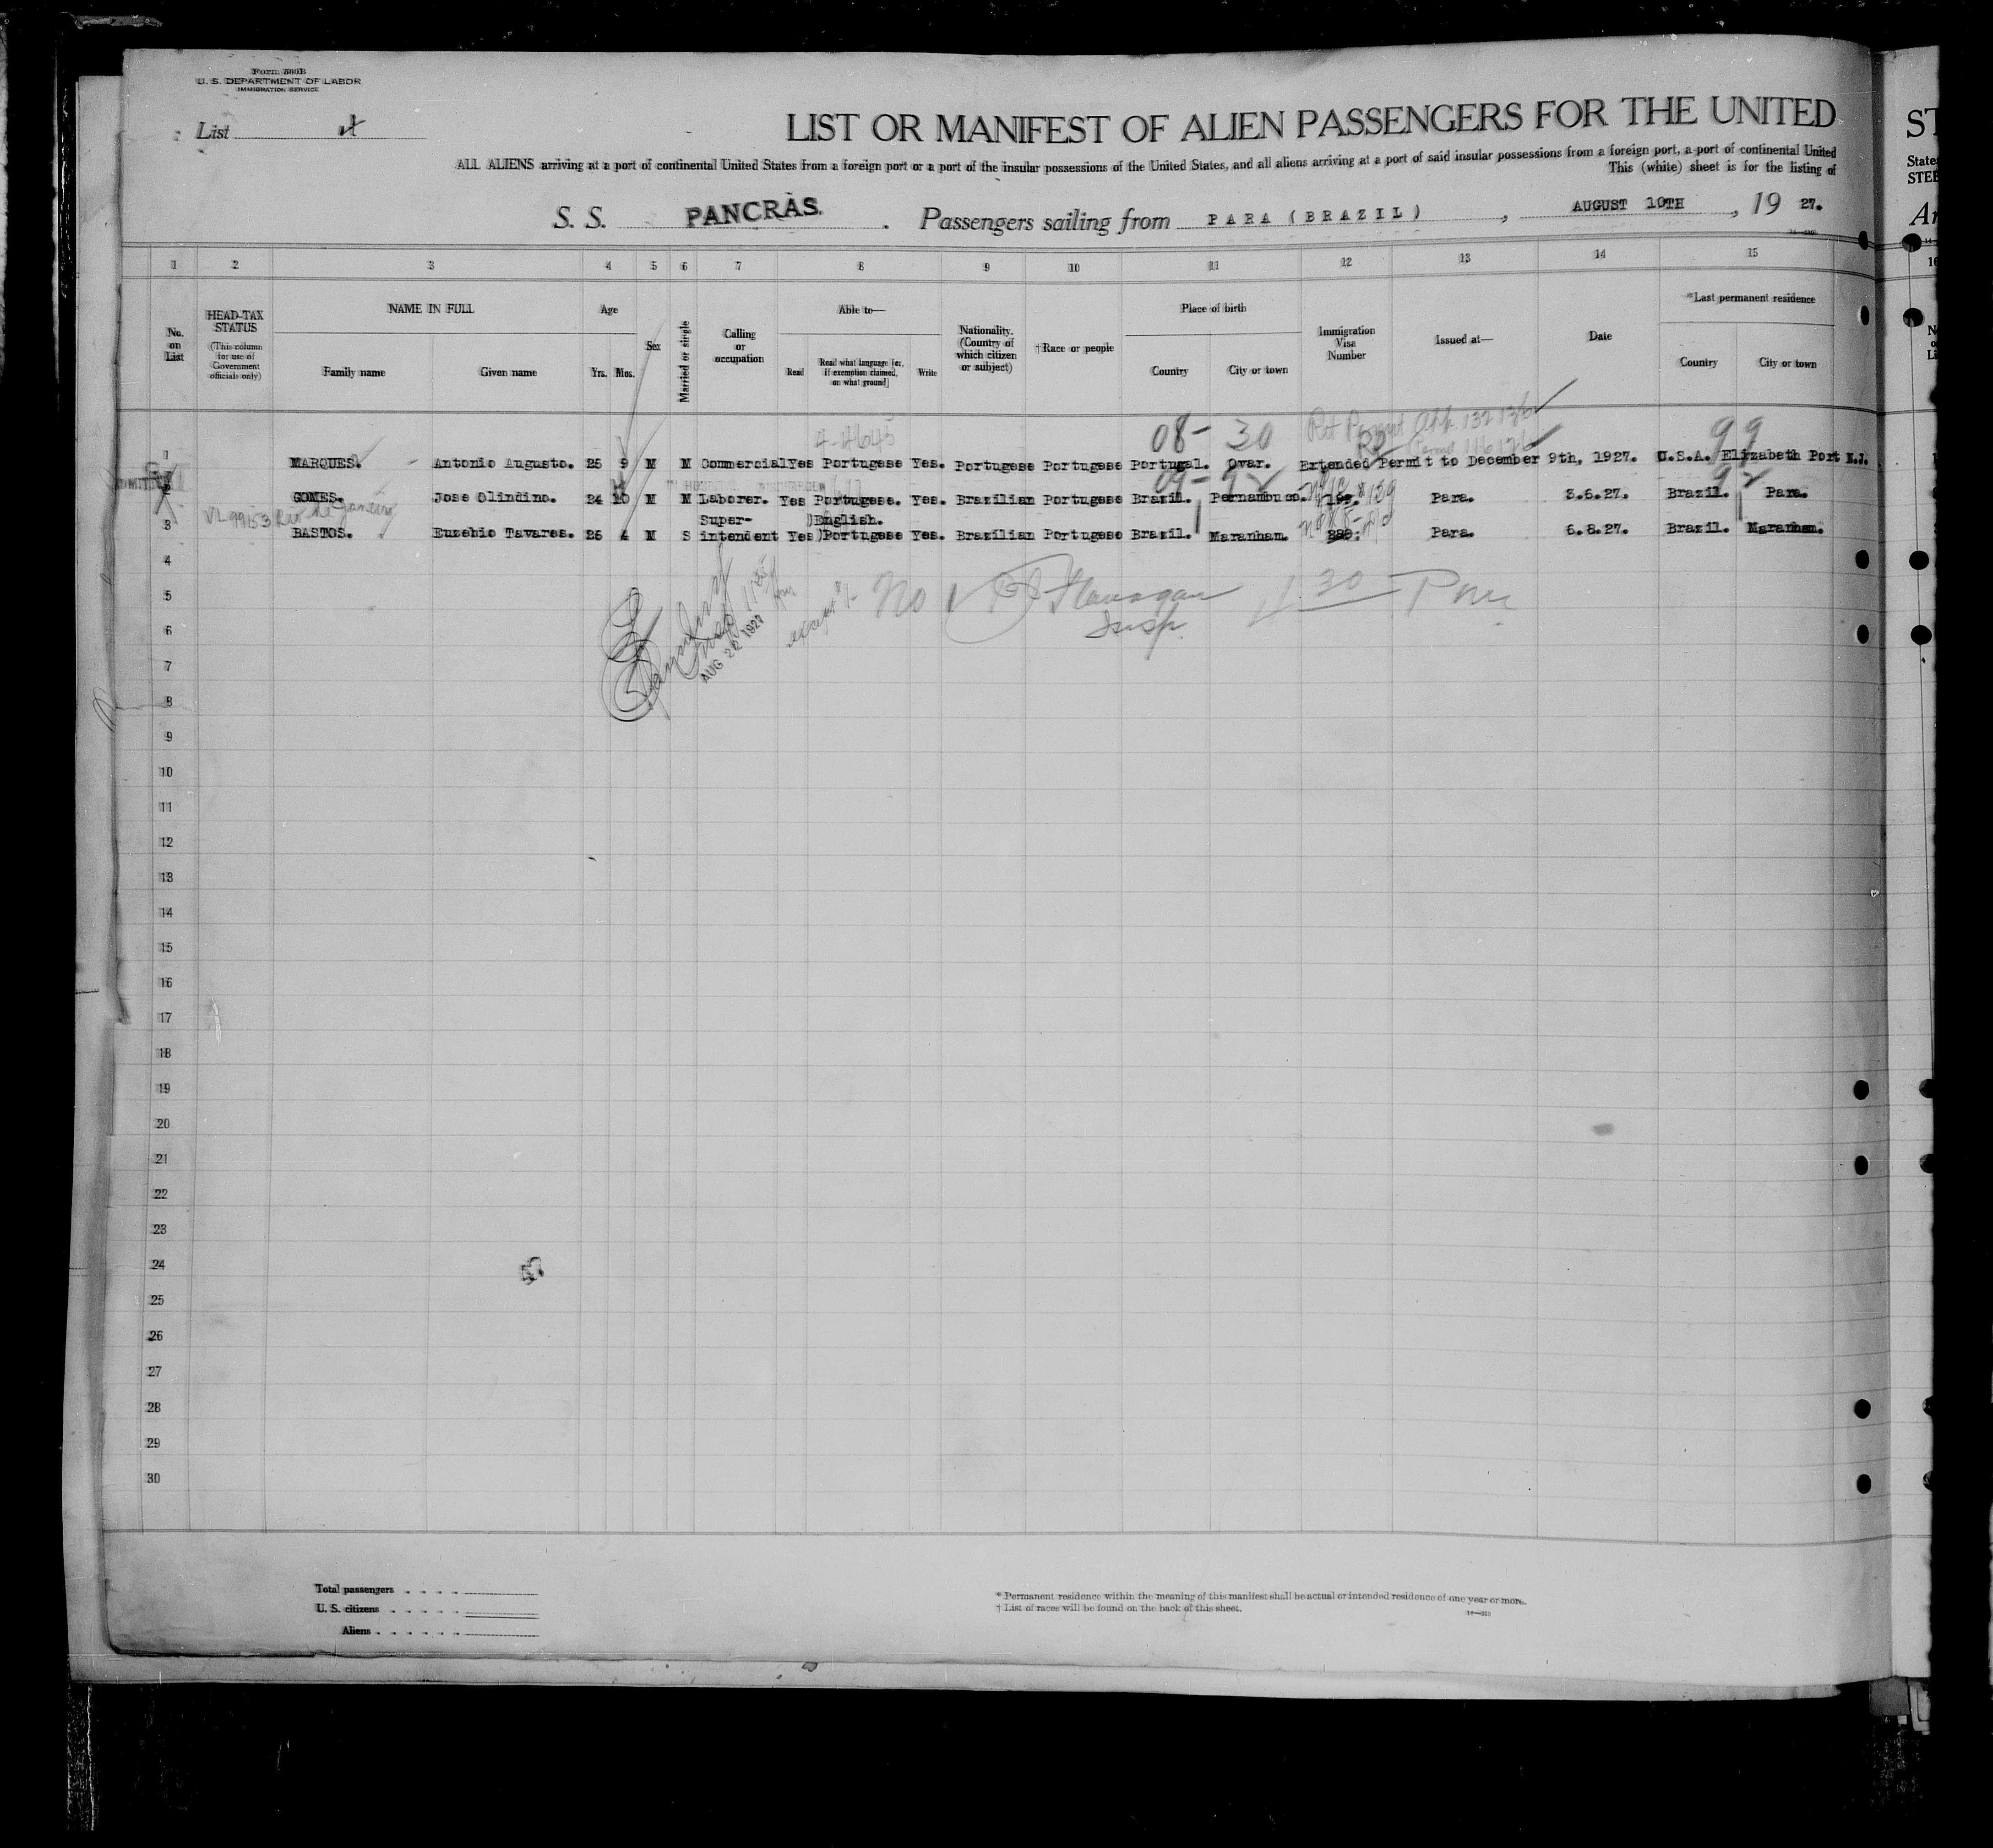 Form 500B
U. S. DEPARTMENT OF LABOR
IMMIGRATION SERVICE
List
LIST OR MANIFEST OF ALIEN PASSENGERS FOR THE UNITED
ST
ALL ALIENS arriving at a port of continental United States from a foreign port or a port of the insular possessions of the United States, and all aliens arriving at a port of said insular possessions from a foreign port, a port of continental United
State
This (white) sheet is for the listing of
STEE
S. S. PANCRAS. Passengers sailing from PARA (BRAZIL), AUGUST 10TH, 19 27.
Ar
1 2 3 4 5 6 7 8 9 10 11 12 13 14 15
16
No. on List
HEAD-TAX STATUS
(This column for use of Government officials only)
NAME IN FULL
Family name Given name
Age
Yrs. Mos.
Sex
Married or single
Calling or occupation
Able to—
Read
Read what language [or, if exemption claimed, on what ground]
Write
Nationality. (Country of which citizen or subject)
†Race or people
Place of birth
Country City or town
Immigration Visa Number
Issued at—
Date
*Last permanent residence
Country City or town
4-4645 08- 30 99
1 MARQUES. Antonio Augusto. 25 9 M M Commercial Yes Portugese Yes. Portugese Portugese Portugal. Ovar. Extended Permit to December 9th, 1927. U.S.A. Elizabeth Port N.J.
2 GOMES. Jose Olindino. 24 10 M M Laborer. Yes Portugese. Yes. Brazilian Portugese Brazil. Pernambuco. Para. 3.6.27. Brazil. Para.
VL 99153 Rio de Janeiro
Super- )English.
3 BASTOS. Euzebio Tavares. 26 4 M S intendent Yes )Portugese Yes. Brazilian Portugese Brazil. Maranham. Para. 6.8.27. Brazil. Maranham.
4
5 No Flanagan 1 30 Pm
6 Insp.
AUG 22 1927
7
8
9
10
11
12
13
14
15
16
17
18
19
20
21
22
23
24
25
26
27
28
29
30
Total passengers
U. S. citizens
Aliens
* Permanent residence within the meaning of this manifest shall be actual or intended residence of one year or more.
† List of races will be found on the back of this sheet.